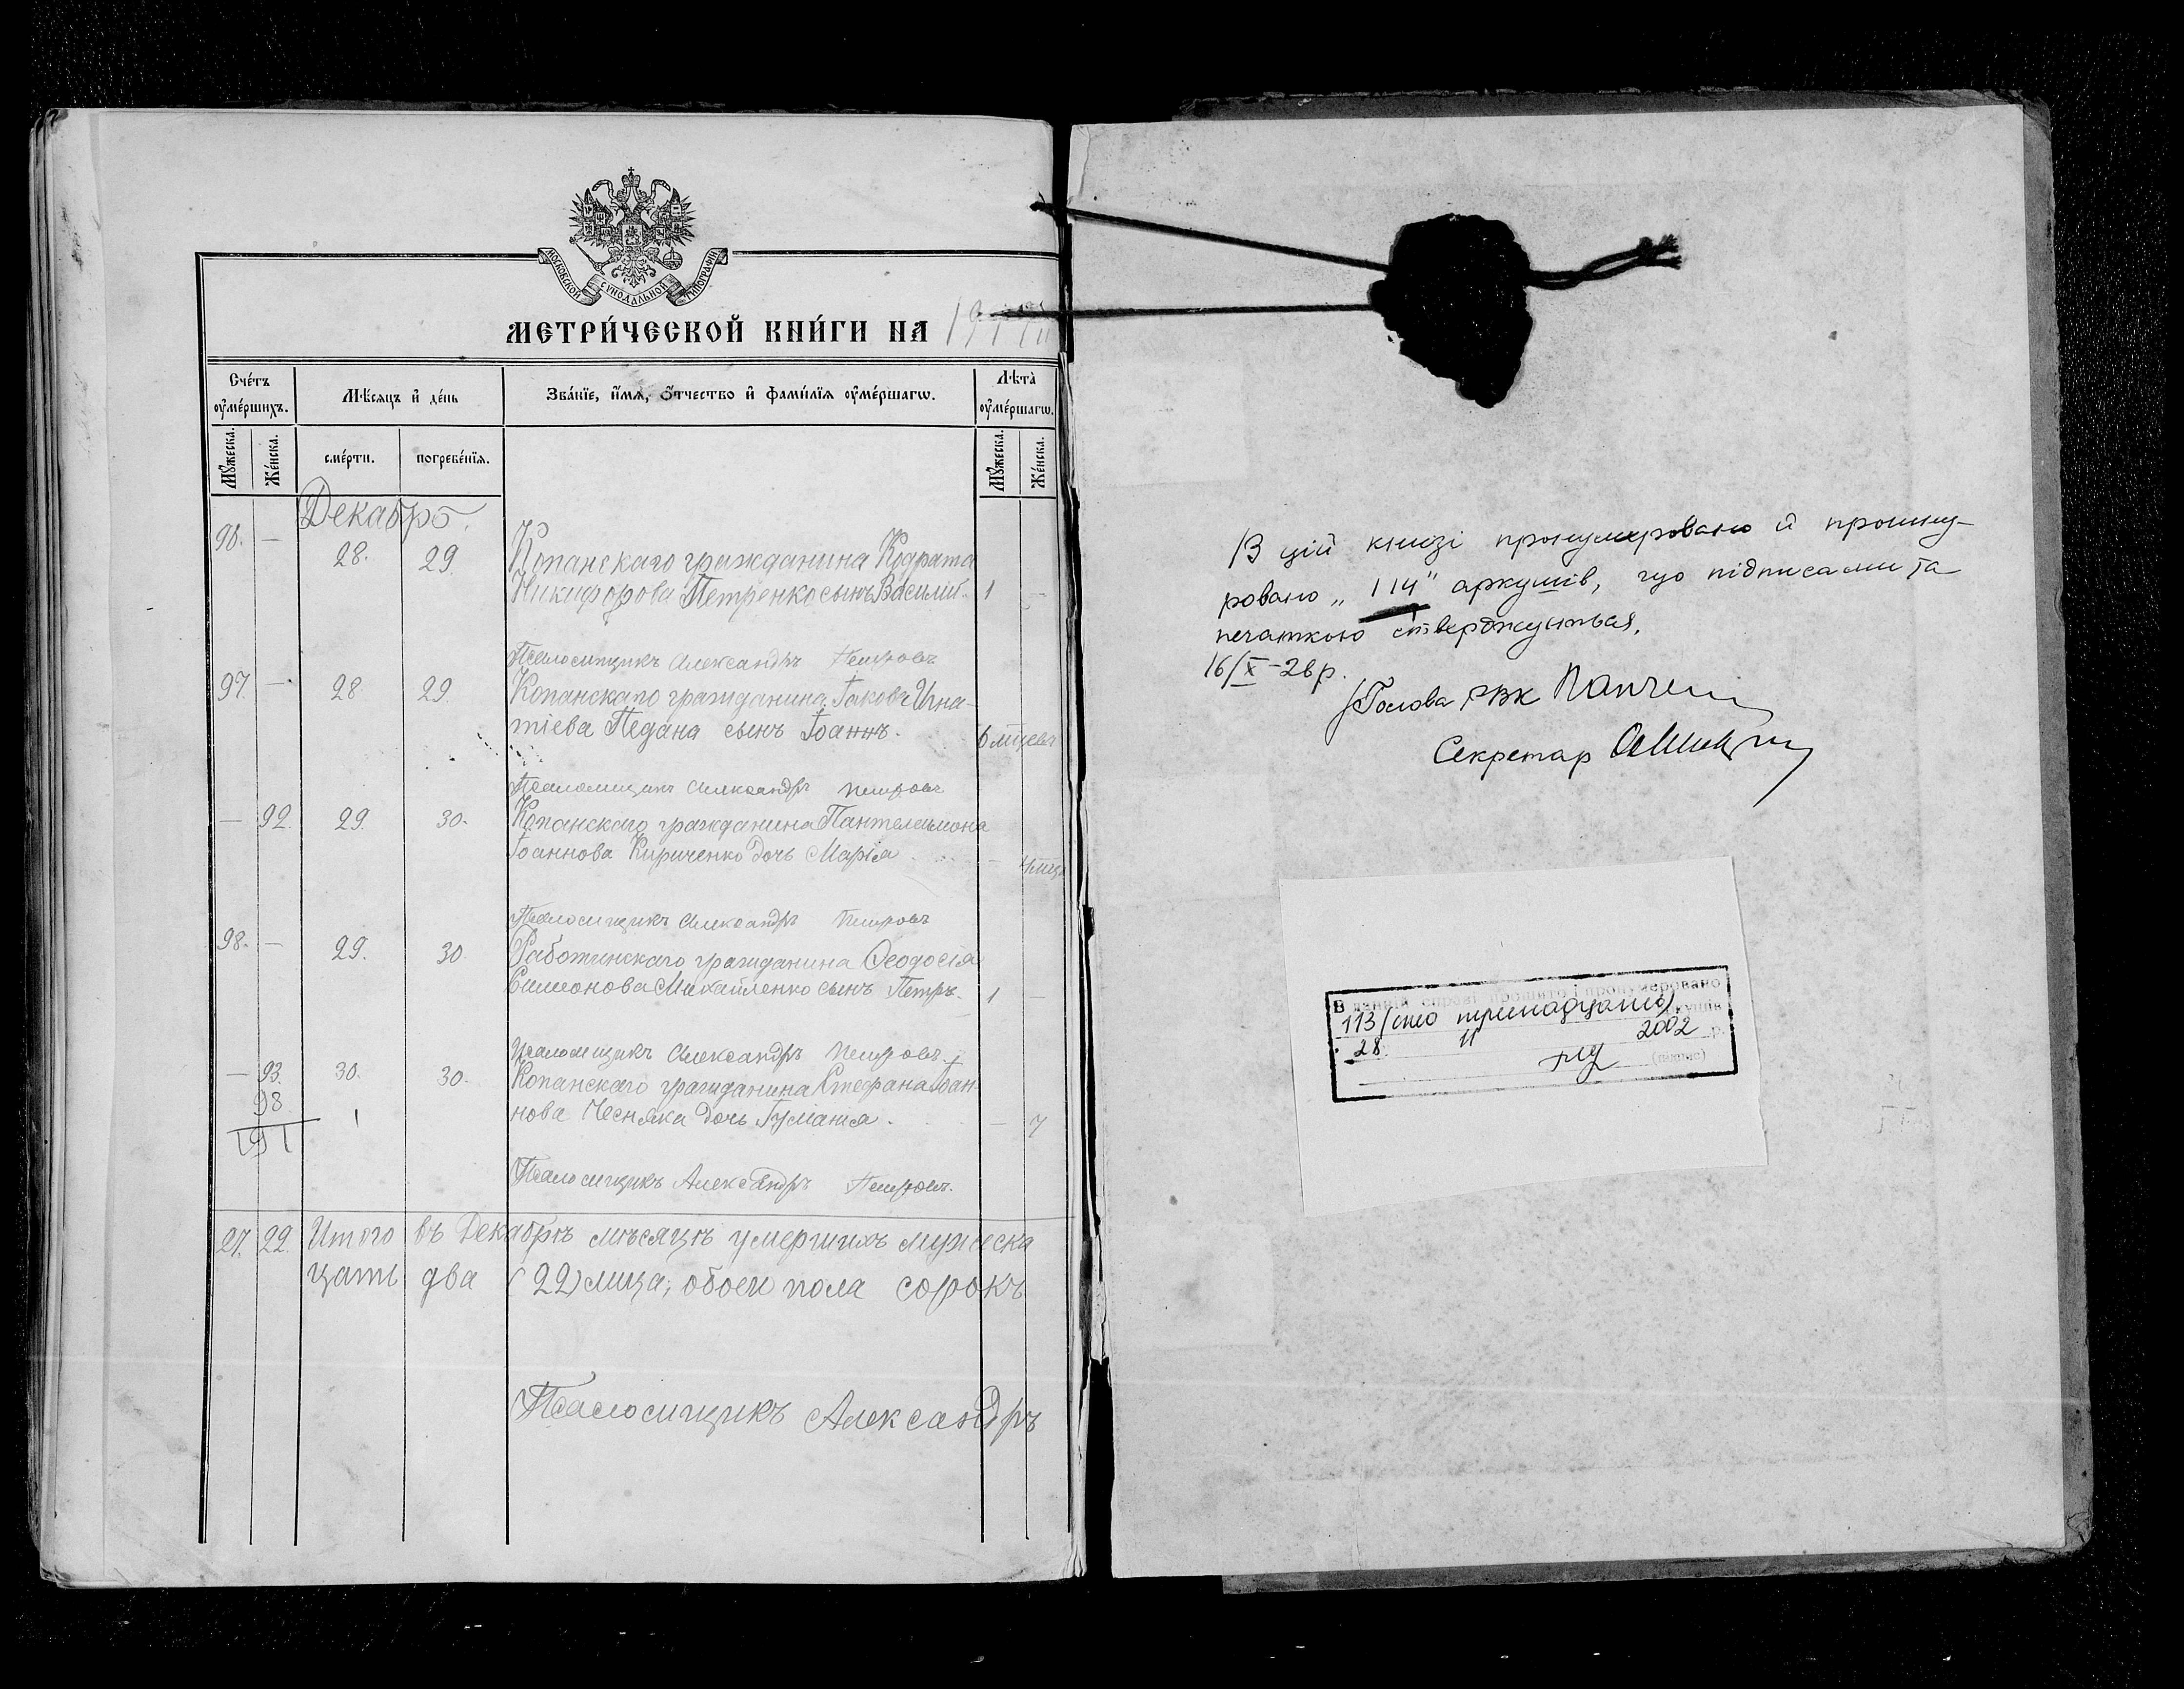 МОСКОВСКОЙ СѴНОДАЛЬНОЙ ТИПОГРАФІИ
МЕТРИ́ЧЕСКОЙ КНИ́ГИ НА 19
Сче́тъ ᲂу҆ме́ршихъ.
Мѣ́сяцъ и҆ де́нь
Зва́нїе, и҆́мѧ, ѻ҆́тчество и҆ фами́лїѧ ᲂу҆ме́ршагѡ.
Лѣта̀ ᲂу҆ме́ршагѡ.
Мꙋ́жеска.
Же́нска.
сме́рти.
погребе́нїѧ.
Мꙋ́жеска.
Же́нска.
Декабрь.
96. — 28. 29. Копанскаго гражданина Кодрата
Никифорова Петренко сынъ Василій. 1 —
Псаломщикъ Александръ Петровъ
97. — 28 29. Копанскаго гражданина Іакова Игна-
тіева Педана сынъ Іоаннъ. 6 мцевъ
Псаломщикъ Александръ Петровъ
— 92. 29. 30. Копанскаго гражданина Пантелеимона
Іоаннова Кириченко дочь Марія —
Псаломщикъ Александръ Петровъ
98. — 29. 30. Работинскаго гражданина Ѳеодосія
Симонова Михайленко сынъ Петръ. 1 —
Псаломщикъ Александръ Петровъ
— 93. 30. 30. Копанскаго гражданина Стефана Іоан
нова Чесняка дочь Іуліанія. — 7
98
191
Псаломщикъ Александръ Петровъ.
27. 22. Итого въ Декабрѣ мѣсяцѣ умершихъ мужеска
цать два (22) лица, обоего пола сорокъ
Псаломщикъ Александръ
В цій книзі пронумеровано й прошну-
ровано „114" аркушів, що підписами та
печаткою стверджується.
16/X-26р.
Голова РВК
Секретар
В данній справі прошито і пронумеровано
113 (сто тринадцять) аркушів
28. 11 2002 р.
(підпис)